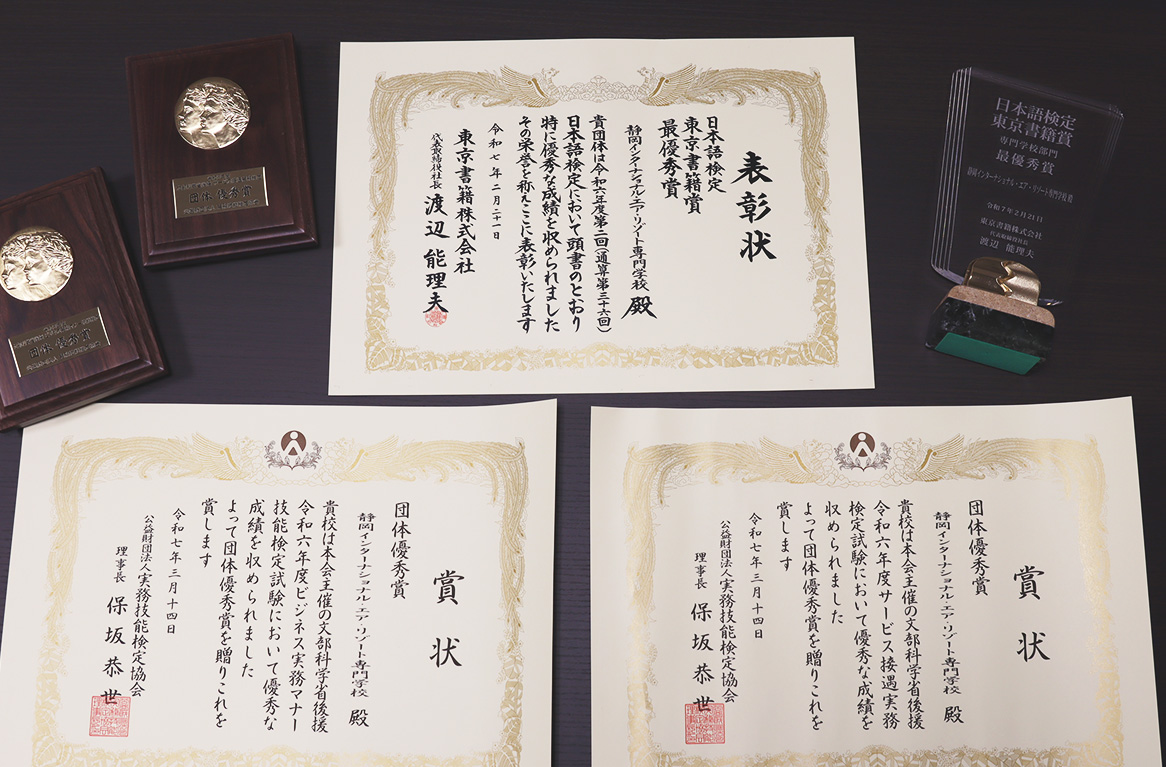 表彰状
日本語検定
東京書籍賞
最優秀賞
静岡インターナショナル・エア・リゾート専門学校 殿
貴団体は令和六年度第二回(通算第三十六回)
日本語検定において頭書のとおり
特に優秀な成績を収められました
その栄誉を称えここに表彰いたします
令和七年二月二十一日
東京書籍株式会社
代表取締役社長 渡辺能理夫
日本語検定
東京書籍賞
専門学校部門
最優秀賞
静岡インターナショナル・エア・リゾート専門学校 殿
令和7年2月21日
東京書籍株式会社
代表取締役社長
渡辺 能理夫
団体 優秀賞
団体 優秀賞
賞状
団体優秀賞
静岡インターナショナル・エア・リゾート専門学校 殿
貴校は本会主催の文部科学省後援
令和六年度ビジネス実務マナー
技能検定試験において優秀な
成績を収められました
よって団体優秀賞を贈りこれを
賞します
令和七年三月十四日
公益財団法人実務技能検定協会
理事長 保坂恭世
賞状
団体優秀賞
静岡インターナショナル・エア・リゾート専門学校 殿
貴校は本会主催の文部科学省後援
令和六年度サービス接遇実務
検定試験において優秀な成績を
収められました
よって団体優秀賞を贈りこれを
賞します
令和七年三月十四日
公益財団法人実務技能検定協会
理事長 保坂恭世